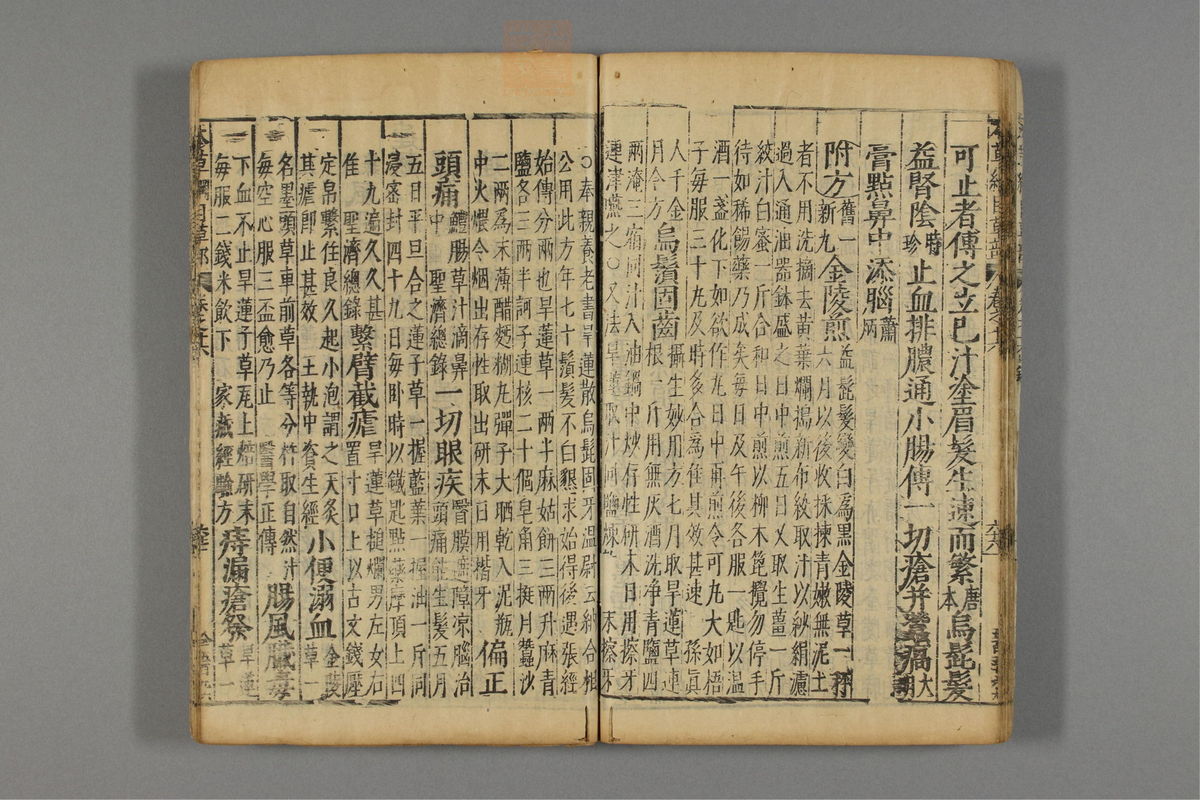 可止者傅之立已汁塗眉髮生速而繁唐本烏髭髮
益腎陰時珍止血排膿通小腸傅一切瘡并蠶㾴大明
膏點鼻中添腦蕭炳
附方舊一新九金陵煎益髭髮變白爲黑金陵草一秤
六月以後收採揀青嫩無泥土
者不用洗摘去黃葉爛搗新布絞取汁以紗絹濾
過入通油器鉢盛之日中煎五日又取生薑一斤
絞汁白蜜一斤合和日中煎以柳木篦攪勿停手
待如稀餳藥乃成矣每日及午後各服一匙以溫
酒一盞化下如欲作丸日中再煎令可丸大如梧
子每服三十丸及時多合爲佳其效甚速 孫眞
人千金月令方 烏鬚固齒攝生妙用方七月取旱蓮草連
根一斤用無灰酒洗净青鹽四
兩淹三宿同汁入油鍋中炒存性研末日用擦牙
連津嚥之○又法旱蓮取汁同鹽煉 末擦牙
○奉親養老書旱蓮散烏髭固牙溫尉云納合相
公用此方年七十鬚髮不白懇求始得後遇張經
始傳分兩也旱蓮草一兩半麻姑餅三兩升麻青
鹽各三兩半訶子連核二十個皂角三挺月蠶沙
二兩爲末薄醋麪糊丸彈子大晒乾入泥瓶
中火煨令烟出存性取出研末日用楷牙 偏正
頭痛鱧腸草汁滴鼻中 聖濟總錄 一切眼疾醫膜遮障凉腦治
頭痛能生髮五月
五日平旦合之蓮子草一握藍葉一握油一斤同
浸密封四十九日每卧時以鐵匙點藥摩頂上四
十九遍久久甚佳 聖濟總錄 繫臂截瘧旱蓮草槌爛男左女右
置寸口上以古文錢壓
定帛繫住良久起小泡謂之天灸
其瘧卽止甚效 王執中資生經 小便溺血金陵草一
名墨頭草車前草各等分杵取自然汁
每空心服三盃愈乃止 醫學正傳 腸風臟毒
下血不止旱蓮子草瓦上焙研末
每服二錢米飲下 家藏經驗方 痔漏瘡發旱蓮草一
本草綱目草部